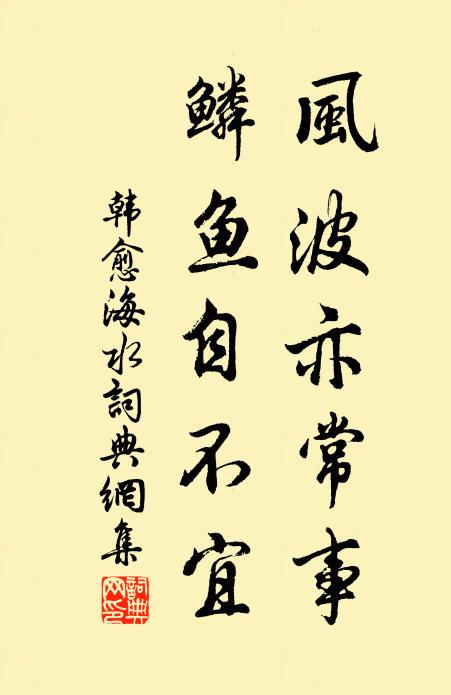 風波亦常事
鳞鱼自不宜
韩愈海水詞典網集
詞典网印